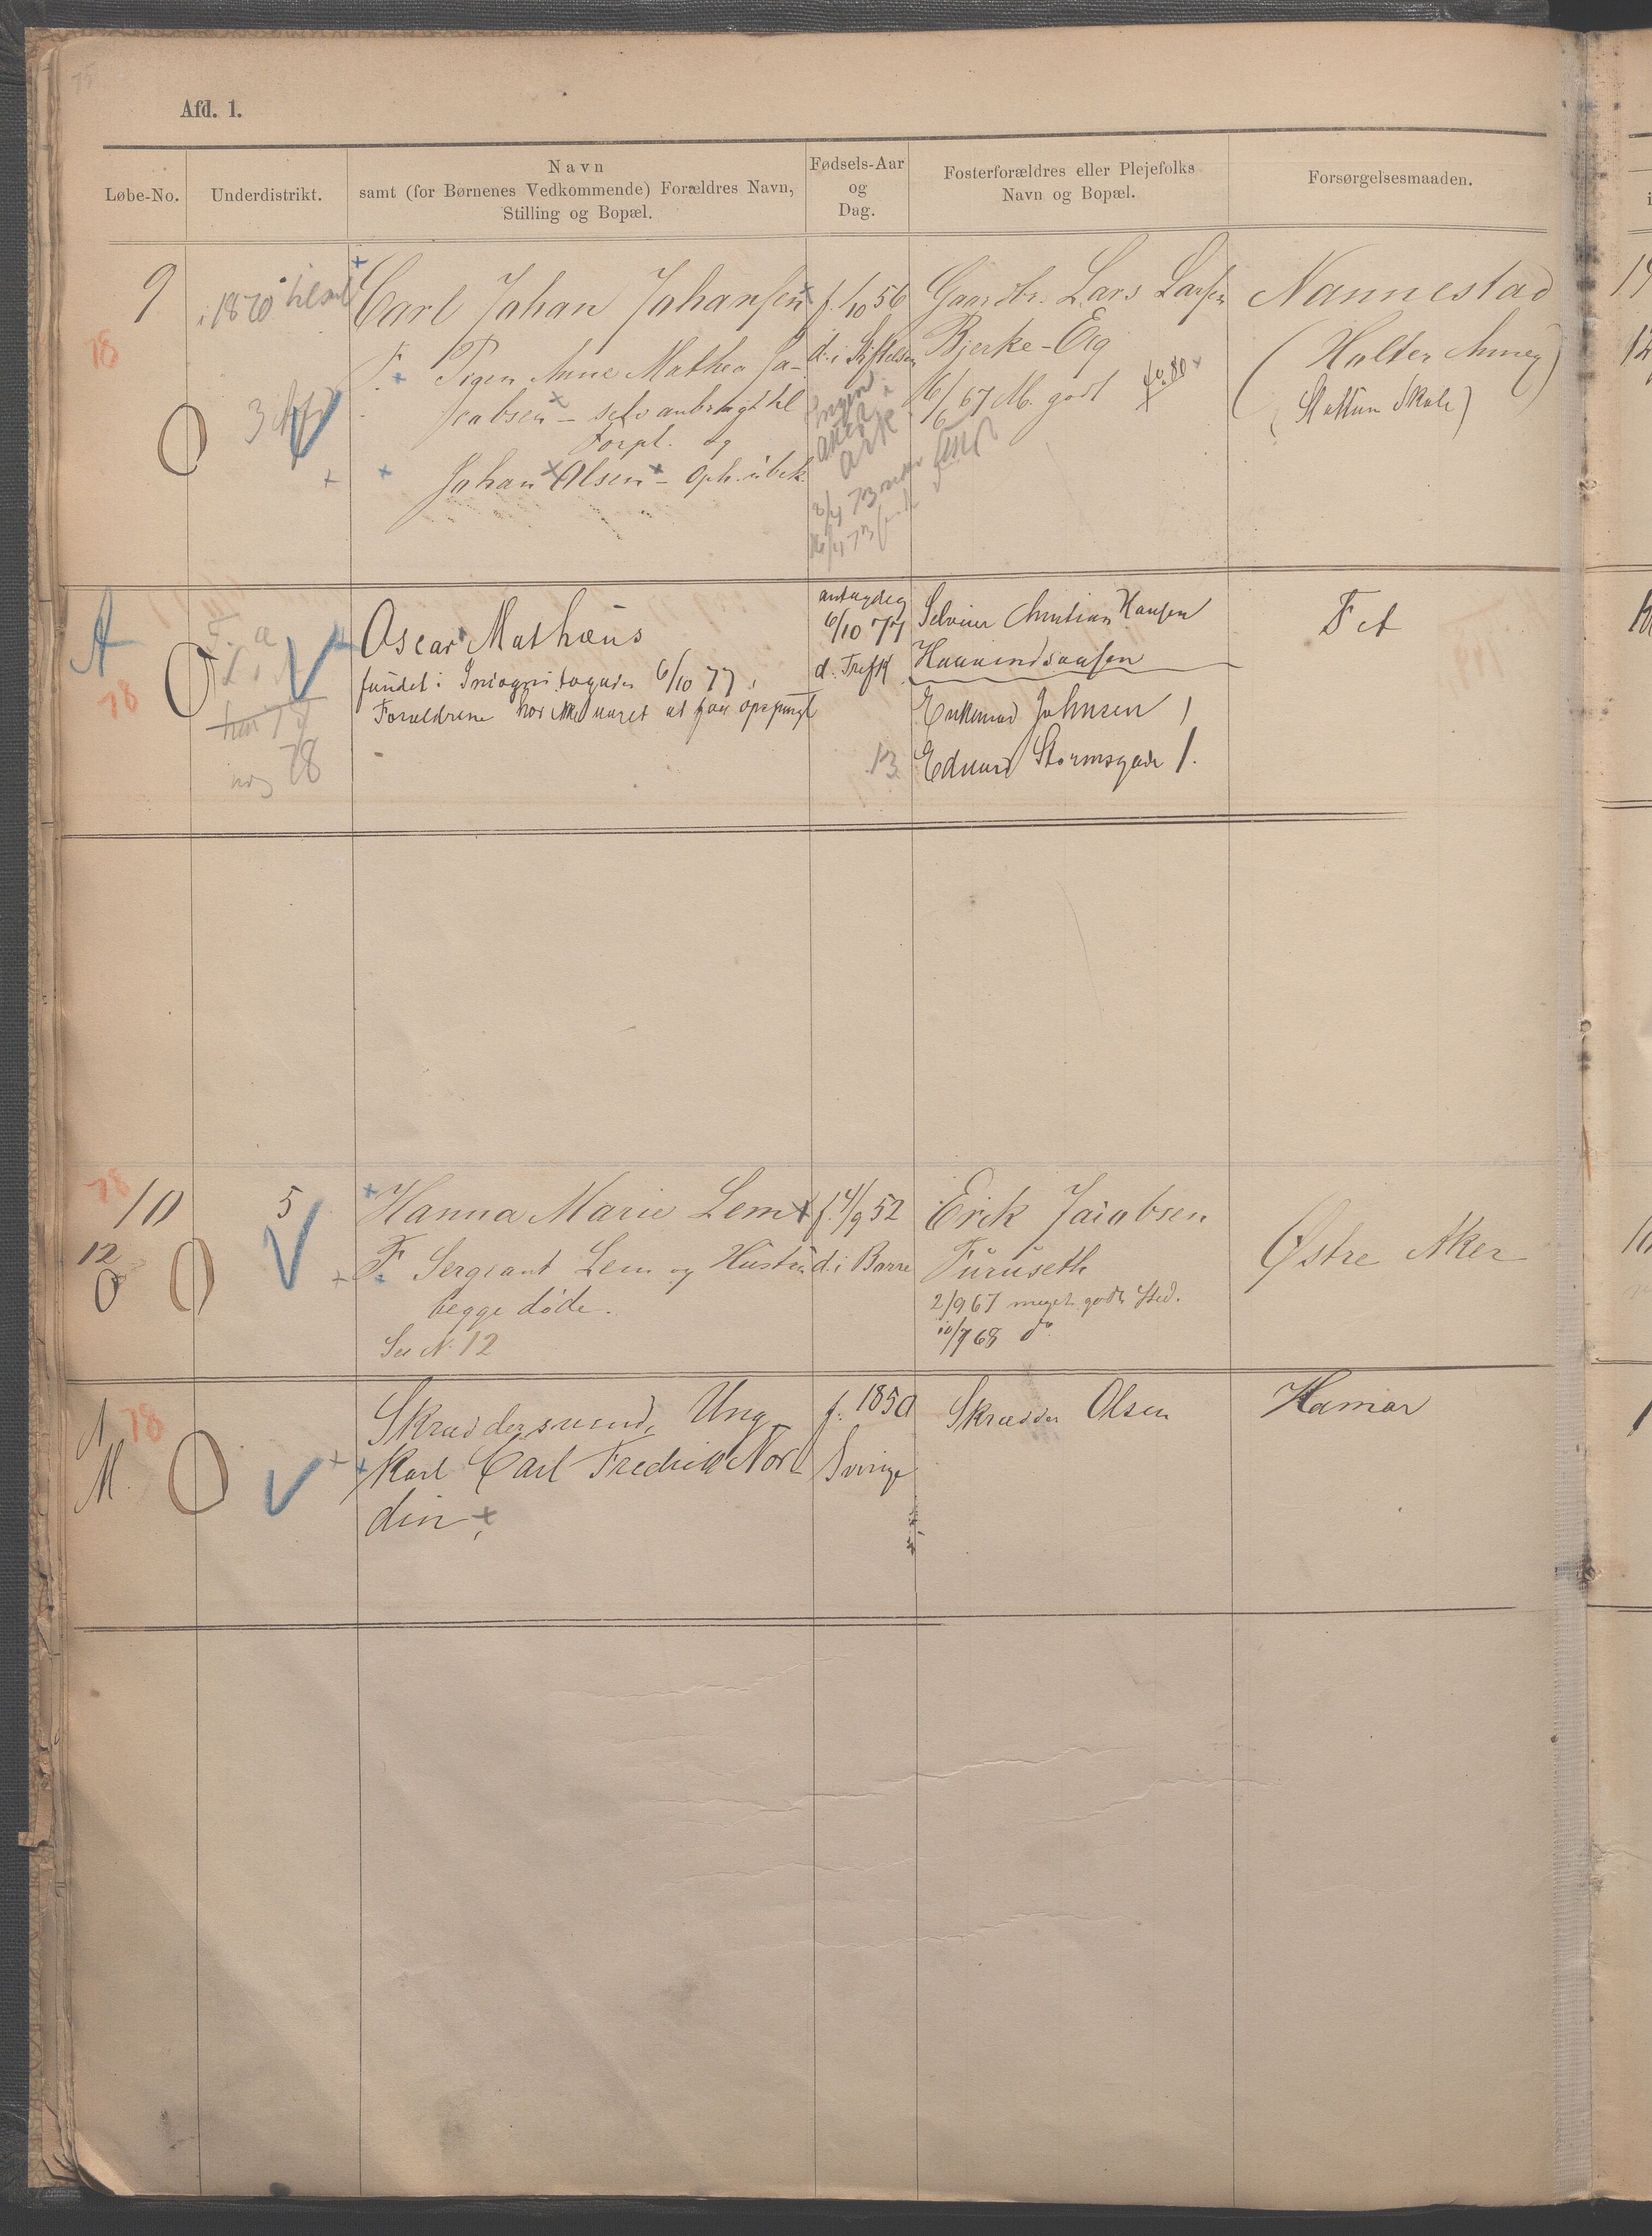 75
Afd. 1.
Løbe-No.
Underdistrikt.
Navn
samt (for Børnenes Vedkommende) Forældres Navn,
Stilling og Bopæl.
Fødsels-Aar
og
Dag.
Fosterforældres eller Plejefolks
Navn og Bopæl.
Forsørgelsesmaaden.
9
78
i 1870
3
Carl Johan Johansen
F. Pigen Anne Mathea Ja-
cobsen – selv anbragt til
Forpl. og
Johan Olsen – Oph. ubek.
f. 1/10 56
d. i Stiftelsen
Gaardbr. Lars Larsen
Bjerke-Eig
16/6 67 M. godt
Nannestad
(Holter Annex)
(Skole)
A
78
78
Oscar Mathæus
fundet i Incognitogaden 6/10 77,
Forældrene har ikke været at faae opspurgt
antagelig
6/10 77
d. Trefk
13
Selveier Christian Hansen
Enkemad Johnsen
Edvard Stormsgade 1.
Fet
78
10
12
5
Hanna Marie Lem
F Sergeant Lem og Hustru
begge døde.
See N. 12
f. 4/9 52
d. i Borre
Erik Jacobsen
Furuseth
2/9 67 meget godt Sted.
10/7 68 do
Østre Aker
A
78
M.
Skræddersvend, Ung-
karl Carl Fredrik Nor-
din
f. 1850
Sverige
Skrædder Olsen
Hamar